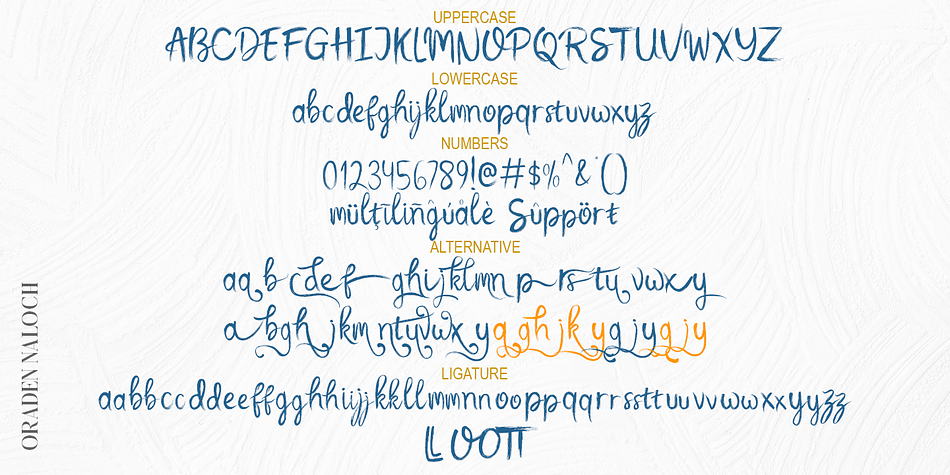 UPPERCASE
ABCDEFGHIJKLMNOPQRSTUVWXYZ
LOWERCASE
abcdefghijklmnopqrstuvwxyz
NUMBERS
0123456789!@#$%^&*()
müļţīlïñĝúålè Sûppört
ALTERNATIVE
aa b cdef ghijklmn p rs tu vwxy
a bgh jkm ntyvwx yqghjkygjyqjy
LIGATURE
aabbccddeeffgghhiijjkkllmmnnooppqqrrssttuuvvwwxxyyzz
LL OOTT
ORADEN NALOCH